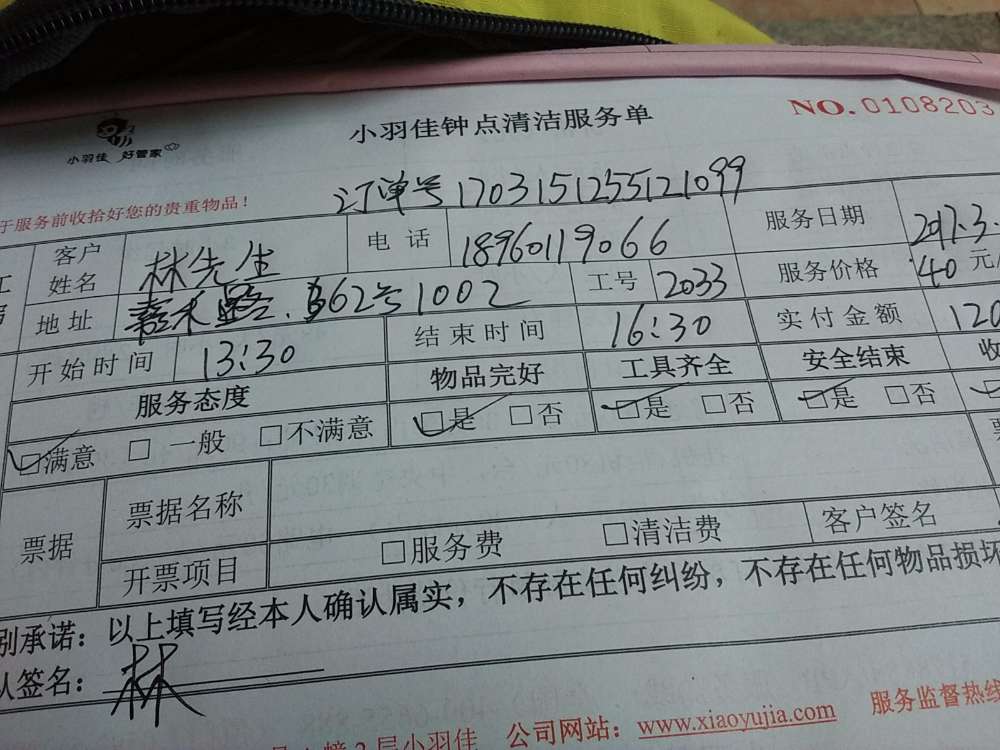 小羽佳 好管家
小羽佳钟点清洁服务单
NO.0108203
于服务前收拾好您的贵重物品！
订单号1703151255121099
客户姓名 林先生 电话 18960119066 服务日期 2017.3.
地址 嘉禾路 362号1002 工号 2033 服务价格 40元/
开始时间 13:30 结束时间 16:30 实付金额 120
服务态度 物品完好 工具齐全 安全结束 收
☑满意 □一般 □不满意 ☑是 □否 ☑是 □否 ☑是 □否
票据 票据名称
开票项目 □服务费 □清洁费 客户签名
别承诺：以上填写经本人确认属实，不存在任何纠纷，不存在任何物品损坏
人签名：林
3层小羽佳 公司网站：www.xiaoyujia.com 服务监督热线